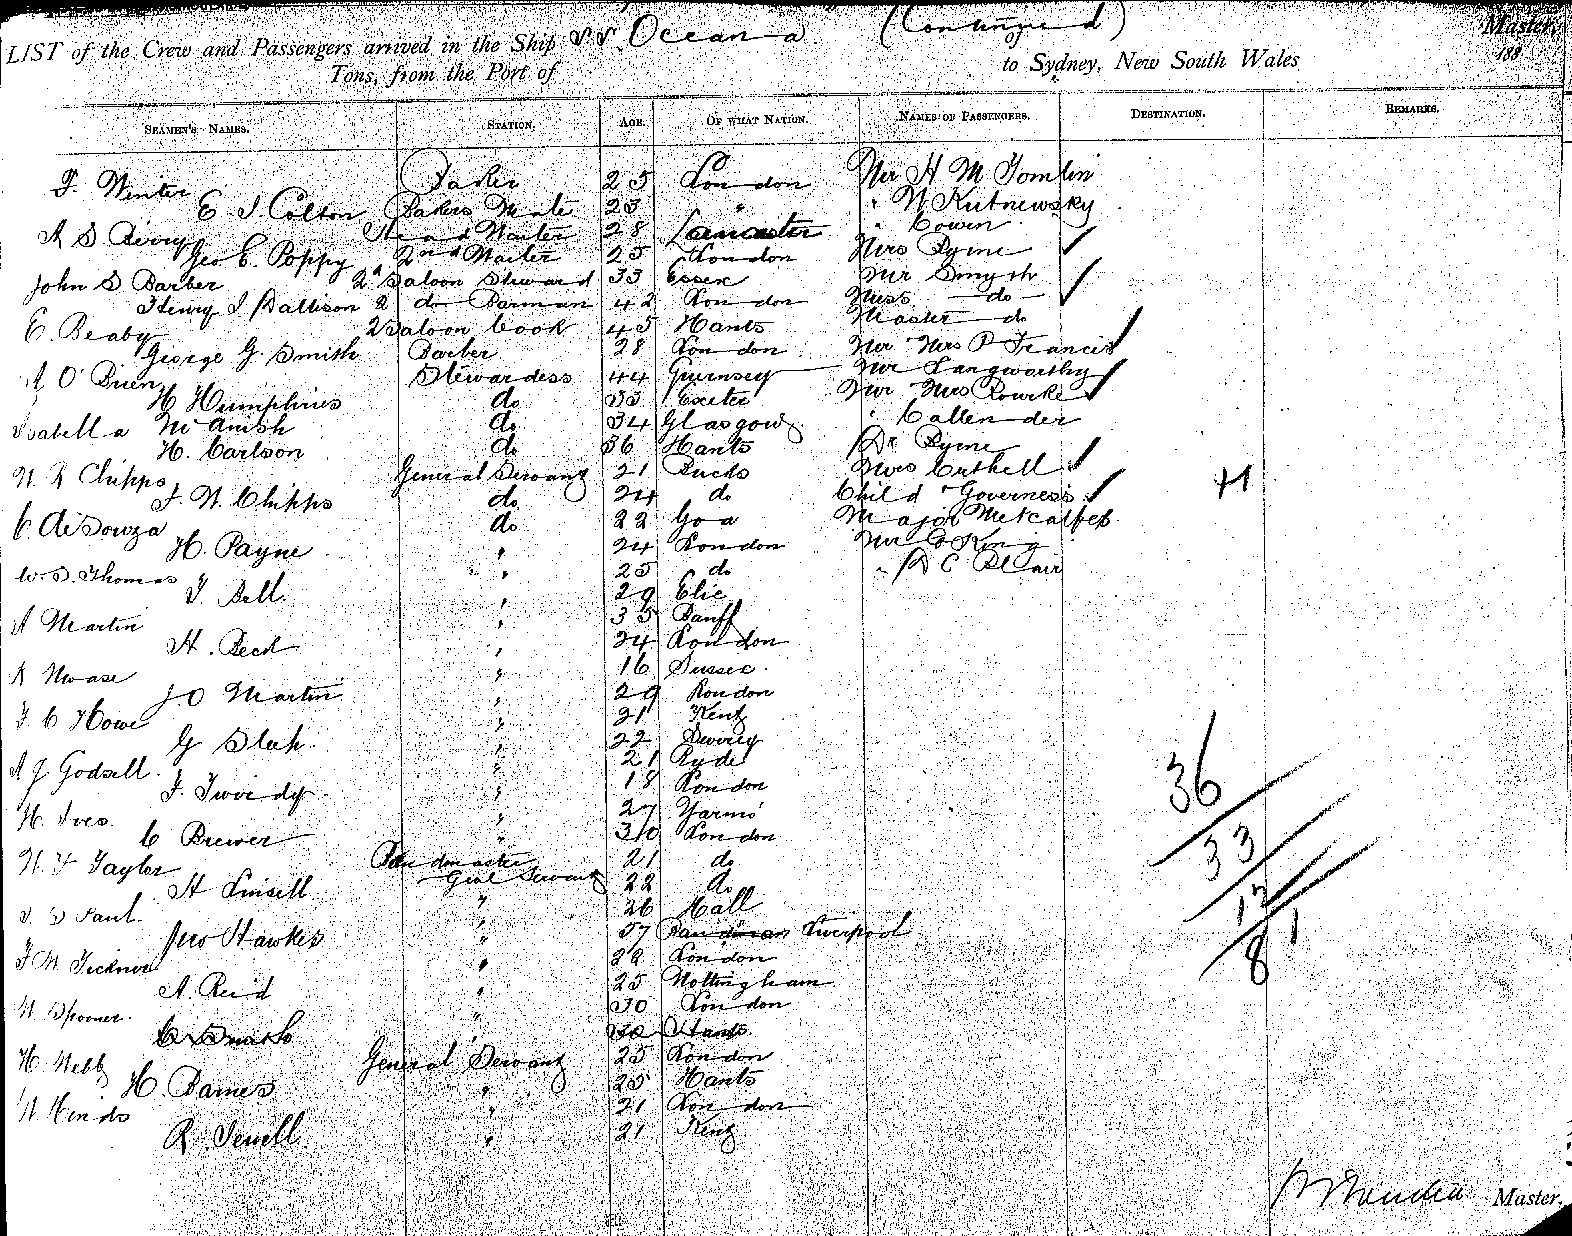 LIST of the Crew and Passengers arrived in the Ship SS Oceana (Continued) of Master,
Tons, from the Port of to Sydney, New South Wales 188
SEAMEN'S NAMES. STATION. AGE. OF WHAT NATION. NAMES OF PASSENGERS. DESTINATION. REMARKS.
F. Winter Baker 25 London Mr H M Tomlin
E J Colton Bakers Mate 23 " " W Kutnewsky
A S Berry Head Waiter 28 Lancaster " Cowen
Geo E. Poppy 2nd Waiter 25 London Mrs Pyme
John S Barber 2d Saloon Steward 33 Essex Mr Smyth
Henry J Battison 2 do Barman 42 London Miss do
E. Beaby 2 Saloon Cook 45 Hants Master do
George G. Smith Barber 28 London Mr Mrs P Francis
A O'Brien Stewardess 44 Guernsey Mr Langworthy
H Humphries do 33 Exeter Mr Mrs Rourke
Isabella McAnish do 34 Glasgow " Callender
H. Carlson do 36 Hants Dr Pyme
W R Chipps General Servant 21 Bucks Mrs Cuthell
J. W. Chipps do 24 do Child & Governess
C De Souza do 22 Goa Major Metcalfe
H. Payne " 24 London Mr C King
W. S. Thomas " 25 do " D C Blair
J. Bell " 29 Elie
A Martin " 35 Banff
H. Beck " 24 London
R Mease " 16 Sussex
J O Martin " 29 London
F C Howe " 21 Kent
G Slak " 22
A J Godsell " 21 Ryde
F. Tweedy " 18 London
H. Ives " 27 Yarmo
C Brewer " 30 London
W. F Taylor Bandmaster 21 do
H Linsell Genl Servant 22 do
J. S Paul " 26
Jno Hawkes " 57 Liverpool
F M " 28 London
A. Reid " 25 Nottingham
W Spooner " 30 London
C Smith 30 Hants
H. Webb General Servant 25 London
H. Barnes " 25 Hants
W. Hinds " 21 London
R. Jewell " 21 Kent
36
33
12
81
Master.